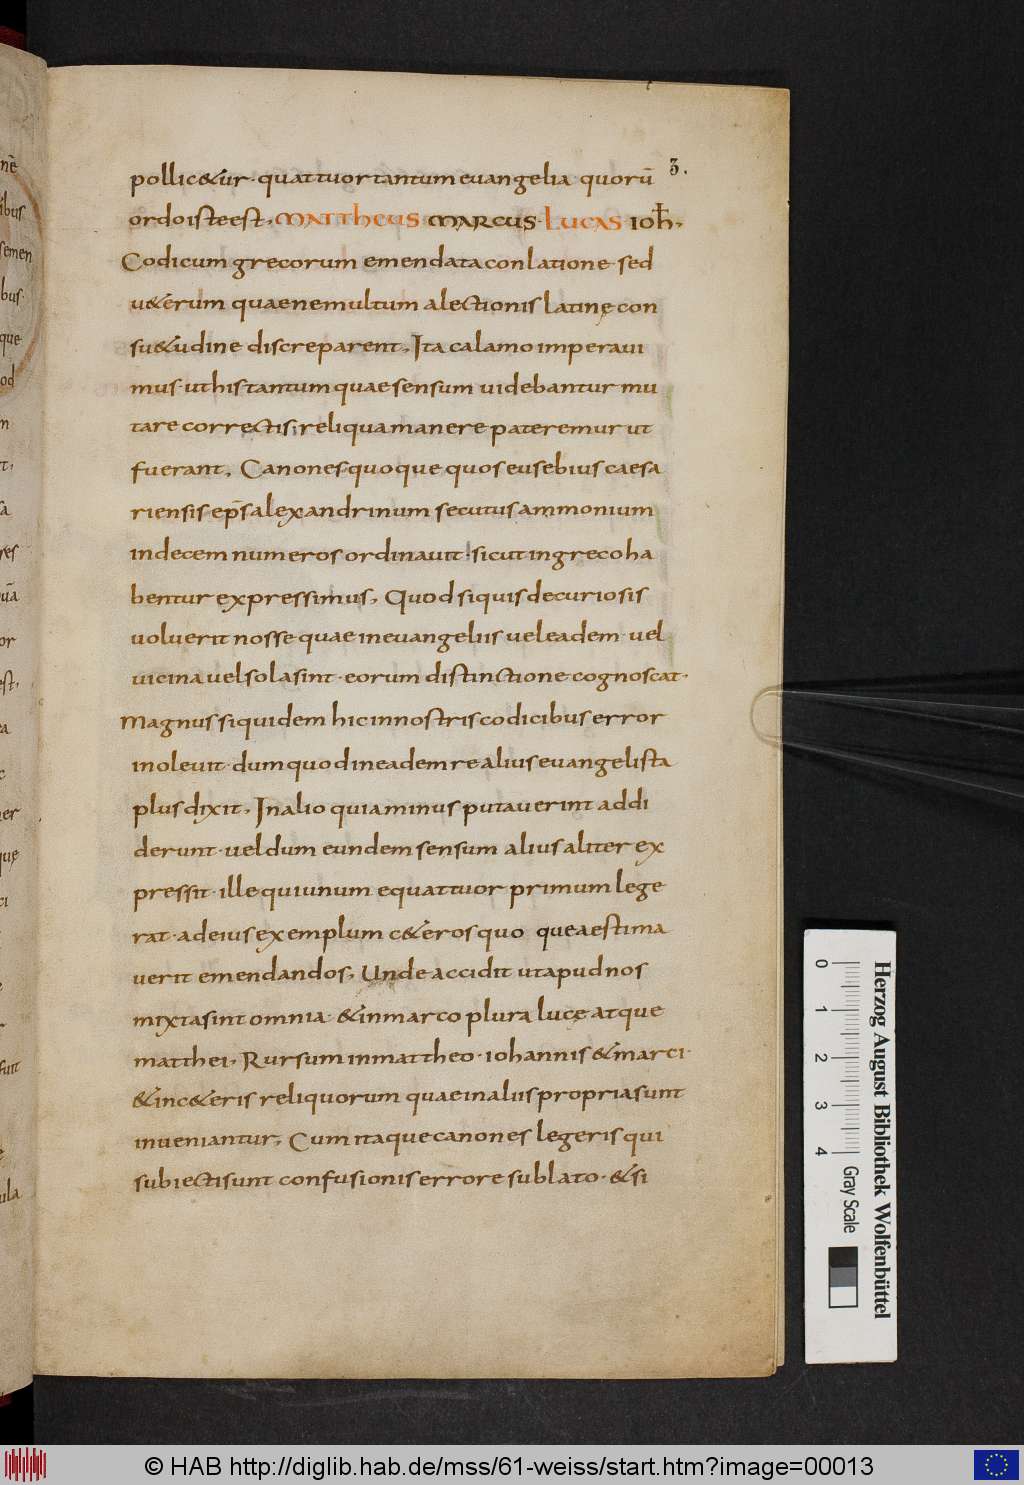 3.
pollic&ur · quattuor tantum euangelia · quorū
ordo iste est, MATTHEUS MARCUS · LUCAS IOH̄,
Codicum grecorum emendata conlatione · sed
u&erum quae ne multum a lectionis latinę con
su&udine discreparent, Ita calamo imperaui
mus · ut his tantum quae sensum uidebantur mu
tare correctis; reliqua manere pateremur ut
fuerant, Canones quoque quos eusebius caesa
riensis ep̄s alexandrinum secutus ammonium
in decem numeros ordinauit · sicut in greco ha
bentur expressimus, Quod si quis de curiosis
uoluerit nosse quae in euangeliis uel eadem · uel
uicina uel sola sint · eorum distinctione cognoscat ·
Magnus siquidem hic in nostris codicibus error
inoleuit · dum quod in eadem re alius euangelista
plus dixit, In alio quia minus putauerint addi
derunt · uel dum eundem sensum alius aliter ex
pressit · ille qui unum e quattuor primum lege
rat · ad eius exemplum c&eros quo queaestima
uerit emendandos, Unde accidit ut apud nos
mixta sint omnia · & in marco plura lucę atque
matthei, Rursum in mattheo · iohannis & marci ·
& in c&eris reliquorum quae in aliis propria sunt
inueniantur, Cum itaque canones legeris qui
subiecti sunt confusionis errore sublato · & si
0 1 2 3 4
Gray Scale
Herzog August Bibliothek Wolfenbüttel
© HAB http://diglib.hab.de/mss/61-weiss/start.htm?image=00013